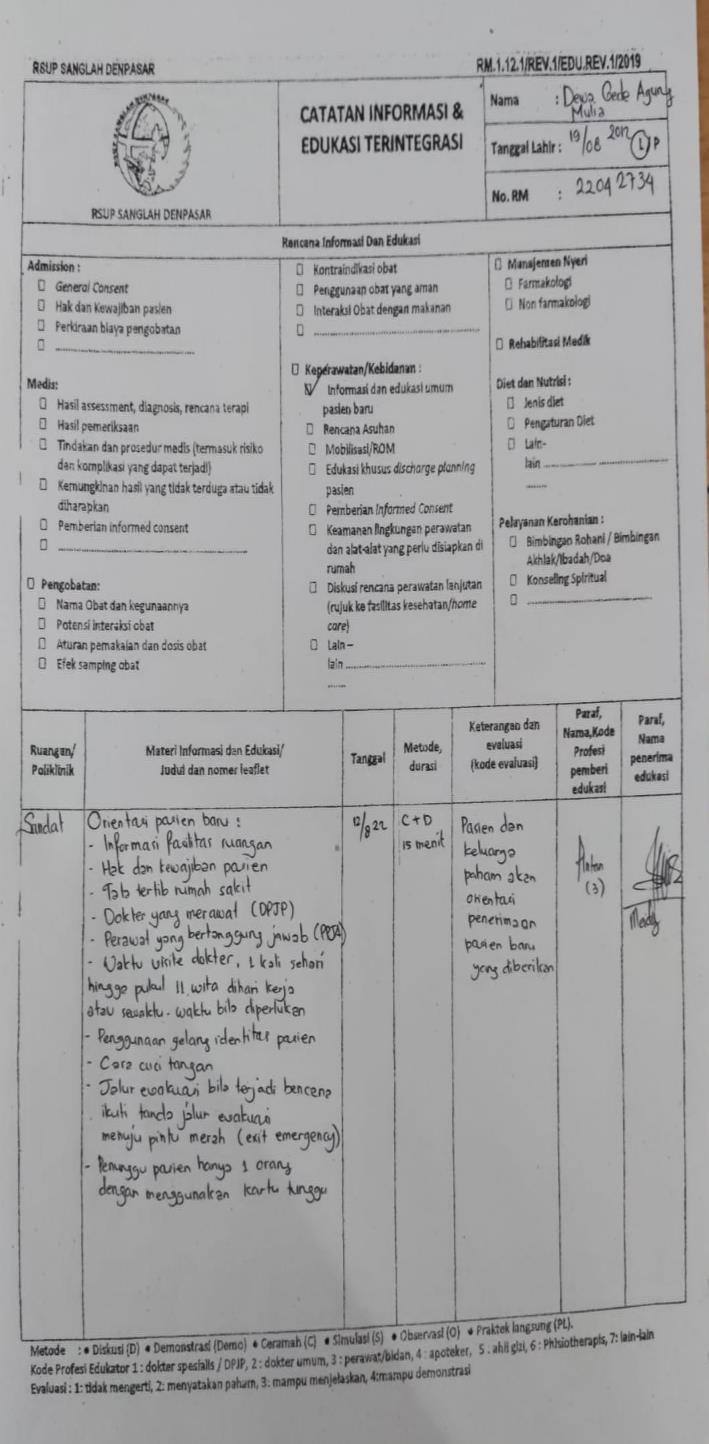 RSUP SANGLAH DENPASAR
RM.1.12.1/REV.1/EDU.REV.1/2019
RSUP SANGLAH DENPASAR
CATATAN INFORMASI &
EDUKASI TERINTEGRASI
Nama : Dewa Gede Agung
Mulia
Tanggal Lahir : 19/08 2012 L/P
No. RM : 22042734
Rencana Informasi Dan Edukasi
Admission :
General Consent
Hak dan Kewajiban pasien
Perkiraan biaya pengobatan
Medis:
Hasil assessment, diagnosis, rencana terapi
Hasil pemeriksaan
Tindakan dan prosedur medis (termasuk risiko
dan komplikasi yang dapat terjadi)
Kemungkinan hasil yang tidak terduga atau tidak
diharapkan
Pemberian informed consent
Pengobatan:
Nama Obat dan kegunaannya
Potensi interaksi obat
Aturan pemakaian dan dosis obat
Efek samping obat
Kontraindikasi obat
Penggunaan obat yang aman
Interaksi Obat dengan makanan
Keperawatan/Kebidanan :
Informasi dan edukasi umum
pasien baru
Rencana Asuhan
Mobilisasi/ROM
Edukasi khusus discharge planning
pasien
Pemberian Informed Consent
Keamanan lingkungan perawatan
dan alat-alat yang perlu disiapkan di
rumah
Diskusi rencana perawatan lanjutan
(rujuk ke fasilitas kesehatan/home
care)
Lain –
lain
Manajemen Nyeri
Farmakologi
Non farmakologi
Rehabilitasi Medik
Diet dan Nutrisi :
Jenis diet
Pengaturan Diet
Lain-
lain
Pelayanan Kerohanian :
Bimbingan Rohani / Bimbingan
Akhlak/Ibadah/Doa
Konseling Spiritual
Ruangan/
Poliklinik
Materi Informasi dan Edukasi/
Judul dan nomer leaflet
Tanggal
Metode,
durasi
Keterangan dan
evaluasi
(kode evaluasi)
Paraf,
Nama,Kode
Profesi
pemberi
edukasi
Paraf,
Nama
penerima
edukasi
Sandat
Orientasi pasien baru :
- Informasi fasilitas ruangan
- Hak dan kewajiban pasien
- Tab tertib rumah sakit
- Dokter yang merawat (DPJP)
- Perawat yang bertanggung jawab (PPJA)
- Waktu visite dokter, 1 kali sehari
hingga pukul 11 wita dihari kerja
atau sewaktu-waktu bila diperlukan
- Penggunaan gelang identitas pasien
- Cara cuci tangan
- Jalur evakuasi bila terjadi bencana
ikuti tanda jalur evakuasi
menuju pintu merah (exit emergency)
- Penunggu pasien hanya 1 orang
dengan menggunakan kartu tunggu
12/8 22
C + D
15 menit
Pasien dan
keluarga
paham akan
orientasi
penerimaan
pasien baru
yang diberikan
(3)
Metode : • Diskusi (D) • Demonstrasi (Demo) • Ceramah (C) • Simulasi (S) • Observasi (O) • Praktek langsung (PL).
Kode Profesi Edukator 1 : dokter spesialis / DPJP, 2 : dokter umum, 3 : perawat/bidan, 4 : apoteker, 5 . ahli gizi, 6 : Phisiotherapis, 7: lain-lain
Evaluasi : 1: tidak mengerti, 2: menyatakan paham, 3: mampu menjelaskan, 4:mampu demonstrasi